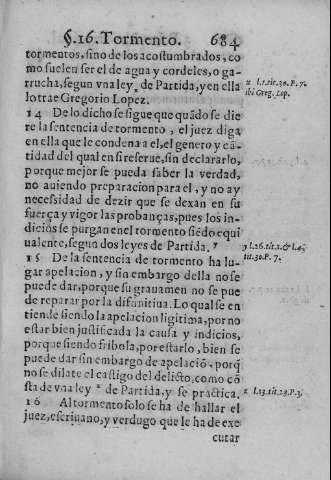 §.16. Tormento. 684
tormentos, sino de los acostumbrados, co
mo suelen ser el de agua y cordeles, o ga-
rrucha, segun vna ley x de Partida, y en ella
lo trae Gregorio Lopez.
x l.1.tit.30.P.7.
ibi Greg. Lop.
14 De lo dicho se sigue que quãdo se die
re la sentencia de tormento, el juez diga
en ella que le condena a el, el genero y cã-
tidad del qual en si reserue, sin declararlo,
porque mejor se pueda saber la verdad,
no auiendo preparacion para el, y no ay
necessidad de dezir que se dexan en su
fuerça y vigor las probanças, pues los in-
dicios se purgan en el tormento siẽdo equi
ualente, segun dos leyes de Partida. y
y l.26.tit.1.& l.4.
tit.30.P.7.
15 De la sentencia de tormento ha lu-
gar apelacion, y sin embargo della no se
puede dar, porque su grauamen no se pue
de reparar por la difinitiua. Lo qual se en
tiende siendo la apelacion ligitima, por no
estar bien justificada la causa y indicios,
porque siendo fribola, por estarlo, bien se
puede dar sin embargo de apelaciõ, porq̃
no se dilate el castigo del delicto, como cõ
sta de vna ley z de Partida, y se practica.
z l.13.tit.23.P.3.
16 Al tormento solo se ha de hallar el
juez, escriuano, y verdugo que le ha de exe
cutar